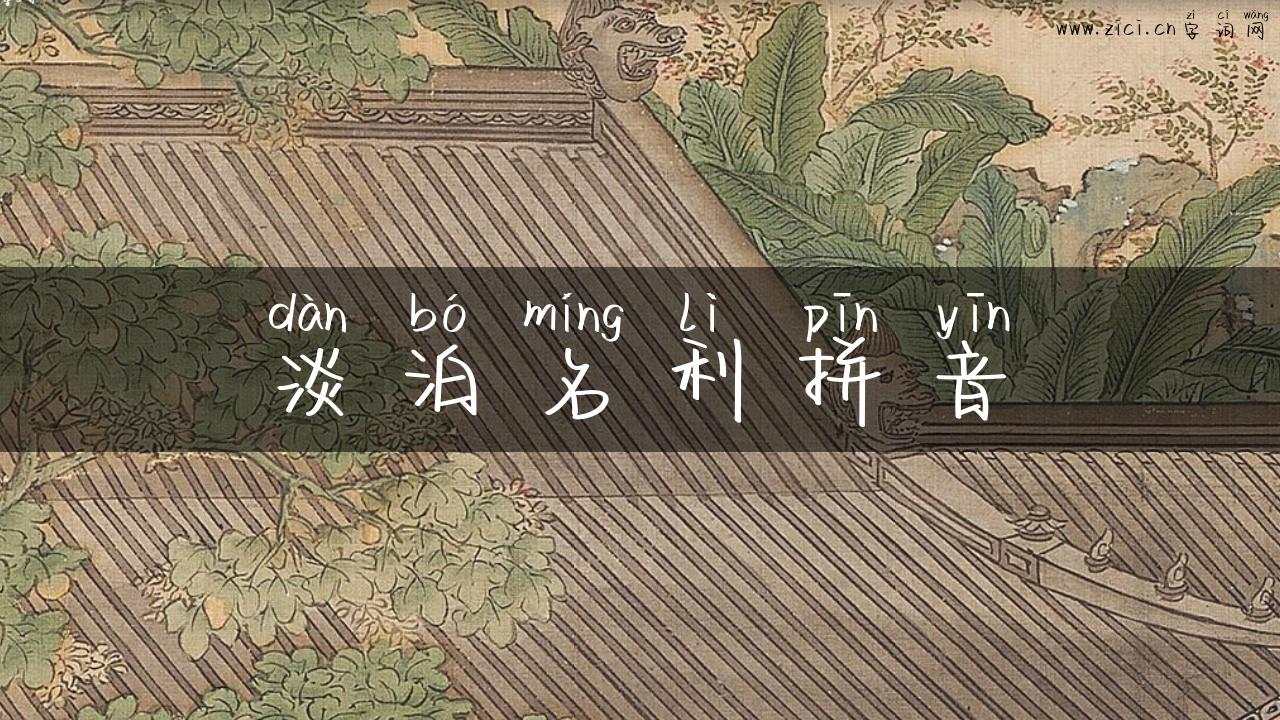 zì cí wǎng
www.zici.cn 字词网
dàn bó míng lì pīn yīn
淡泊名利拼音